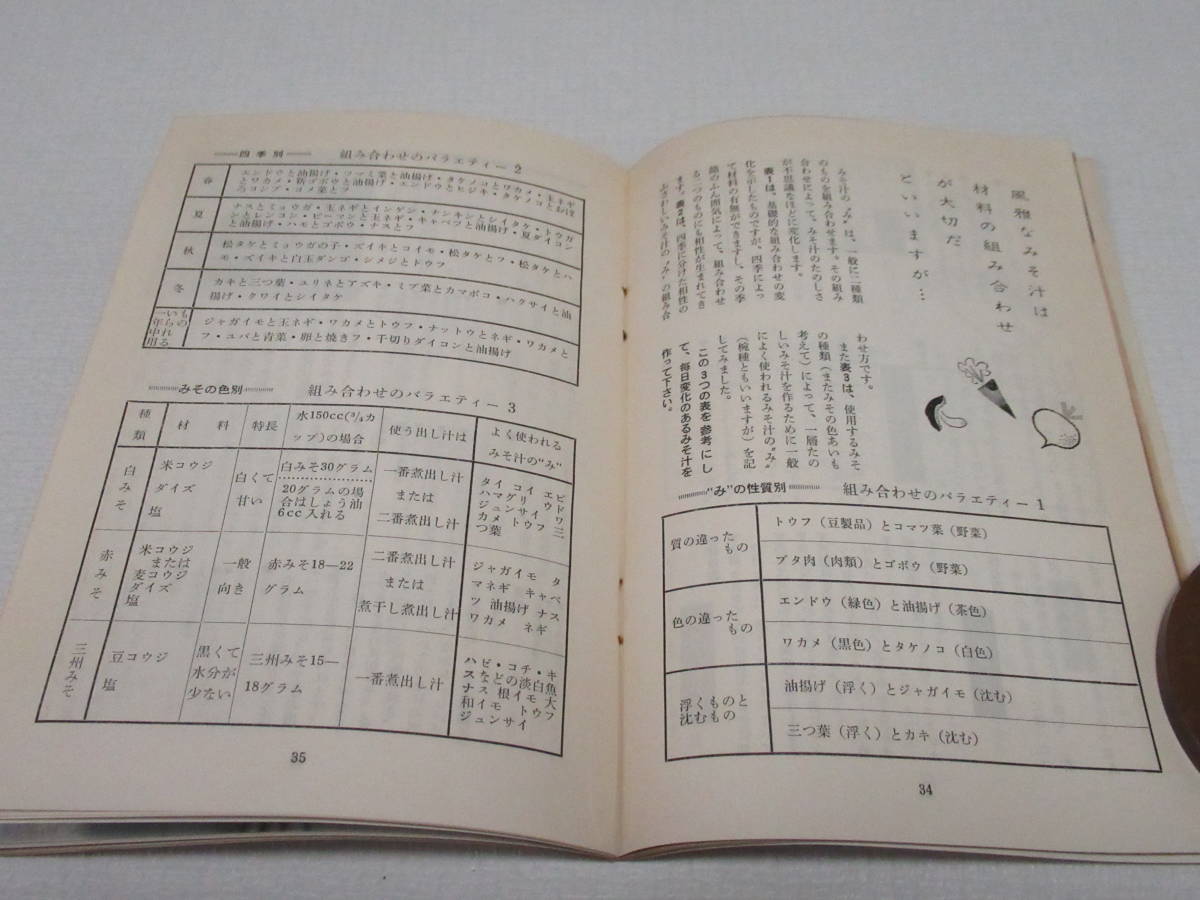 風雅なみそ汁は
材料の組み合わせ
が大切だ
といいますが…
みそ汁の〝み〟は、一般に二種類
のものを組み合わせます。その組み
合わせによって、みそ汁のたのしさ
が不思議なほどに変化します。
表1は、基礎的な組み合わせの変
化を示したものですが、四季によっ
て材料の有無ができますし、その季
節のふん囲気によって、組み合わせ
る二つのものにも相性が生まれてき
ます。表2は、四季に分けた相性の
ふさわしいみそ汁の〝み〟の組み合
わせ方です。
また表3は、使用するみそ
の種類(またみその色あいも
考えて)によって、一層たの
しいみそ汁を作るために一般
によく使われるみそ汁の〝み〟
(椀種ともいいますが)を記
してみました。
この3つの表を参考にし
て、毎日変化のあるみそ汁を
作って下さい。
"み"の性質別 組み合わせのバラエティー1
質の違った
もの
トウフ(豆製品)とコマツ菜(野菜)
ブタ肉(肉類)とゴボウ(野菜)
色の違った
もの
エンドウ(緑色)と油揚げ(茶色)
ワカメ(黒色)とタケノコ(白色)
浮くものと
沈むもの
油揚げ(浮く)とジャガイモ(沈む)
三つ葉(浮く)とカキ(沈む)
34
四季別 組み合わせのバラエティー2
春
エンドウと油揚げ・ツマミ菜と油揚げ・タケノコとワカメ・玉ネギ
とワカメ・新ゴボウと油揚げ・エンドウとヒジキ・タケノコとおぼ
ろコンブ・コメ菜とフ
夏
ナスとミョウガ・玉ネギとインゲン・ナンキンとシイタケ・トウガ
ンとレンコン・ピーマンと玉ネギ・キャベツと油揚げ・夏ダイコン
と油揚げ・ハモとゴボウ・ナスとフ
秋
松タケとミョウガの子・ズイキとコイモ・松タケとフ・松タケとハ
モ・ズイキと白玉ダンゴ・シメジとトウフ
冬
カキと三つ葉・ユリネとアズキ・ミブ菜とカマボコ・ハクサイと油
揚げ・クワイとシイタケ
一いも
年らの
中れ
用る
ジャガイモと玉ネギ・ワカメとトウフ・ナットウとネギ・ワカメと
フ・ユバと青菜・卵と焼きフ・千切りダイコンと油揚げ
みその色別 組み合わせのバラエティー3
種類 材料 特長 水150cc(3/4カ
ップ)の場合 使う出し汁は よく使われる
みそ汁の"み"
白みそ
米コウジ
ダイズ
塩
白くて
甘い
白みそ30グラム
20グラムの場
合はしょう油
6cc入れる
一番煮出し汁
または
二番煮出し汁
タイ コイ エビ
ハマグリ ウド
ジュンサイ ワ
カメ トウフ 三
つ葉
赤みそ
米コウジ
または
麦コウジ
ダイズ
塩
一般
向き
赤みそ18―22
グラム
二番煮出し汁
または
煮干し煮出し汁
ジャガイモ タ
マネギ キャベ
ツ 油揚げ ナス
ワカメ ネギ
三州みそ
豆コウジ
塩
黒くて
水分が
少ない
三州みそ15―
18グラム
一番煮出し汁
ハゼ・コチ・キ
スなどの淡白魚
ナス 根イモ 大
和イモ トウフ
ジュンサイ
35